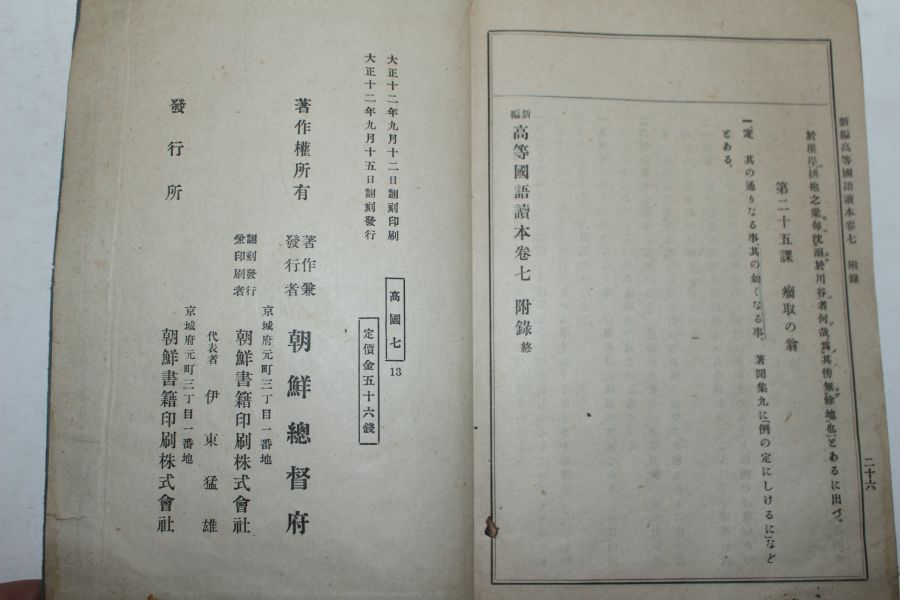 新編高等國語讀本卷七　附錄
二十六
於崖岸、拱抱之梁每沈溺於川谷者何哉、爲其傍無餘地也」とあるに出づ。
第二十五課　瘤取の翁
一定　其の通りなる事、其の如くなる事。著聞集九に「例の定にしけるに」など
とある。
新編高等國語讀本卷七　附錄終
大正十二年九月十二日翻刻印刷
大正十二年九月十五日翻刻發行
高國七
13
定價金五十六錢
著作權所有
著作兼發行者
朝鮮總督府
翻刻發行兼印刷者
京城府元町三丁目一番地
朝鮮書籍印刷株式會社
代表者　伊東猛雄
發行所
京城府元町三丁目一番地
朝鮮書籍印刷株式會社